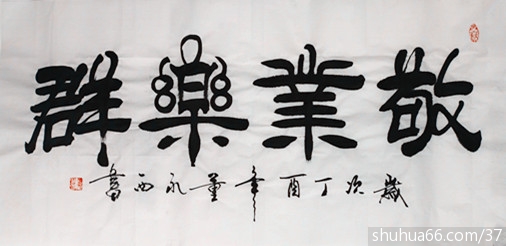 敬業樂群
歲次丁酉年董永西書
shuhua66.com/37